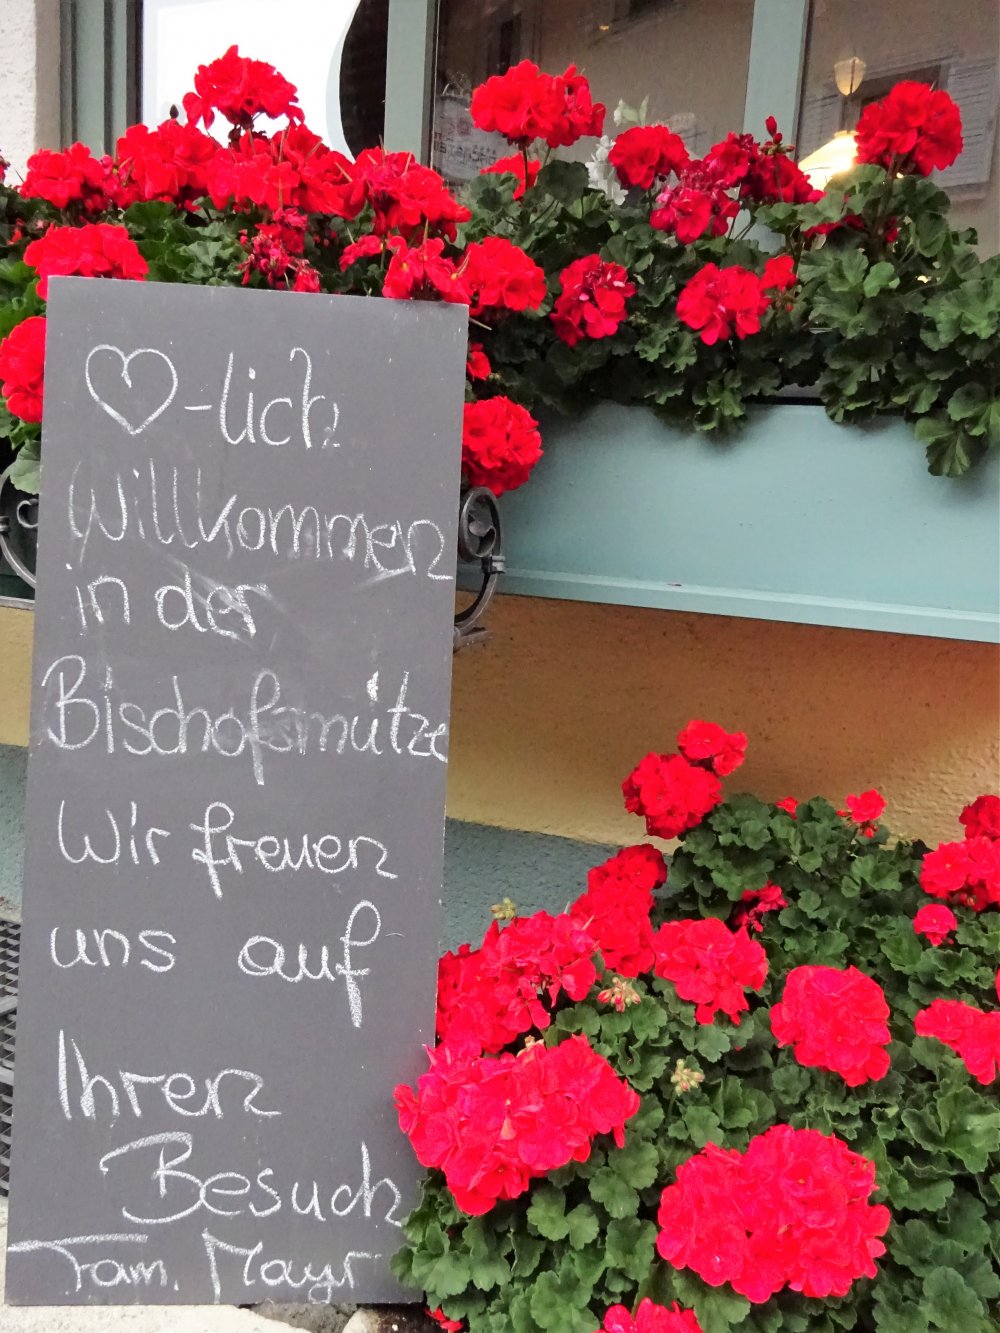 ♡-lich
Willkommen
in der
Bischofsmütze
Wir freuen
uns auf
Ihren
Besuch
Fam. Mayr